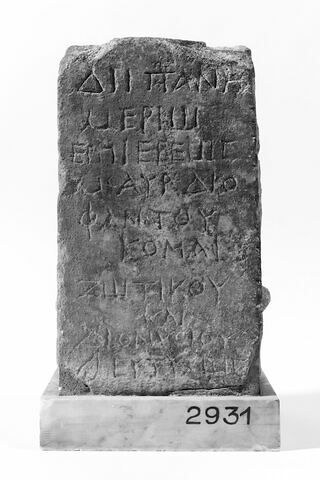 ΔΙΙ ΠΑΝΗ
ΜΕΡΙΩ
ΕΠΙ ΙΕΡΕΩΣ
Μ ΑΥΡ ΔΙΟ
ΦΑΝΤΟΥ
ΚΟΜΑΙ
ΖΩΤΙΚΟΥ
ΚΑΙ
ΔΙΟΝΥΣΙΟΥ
2931